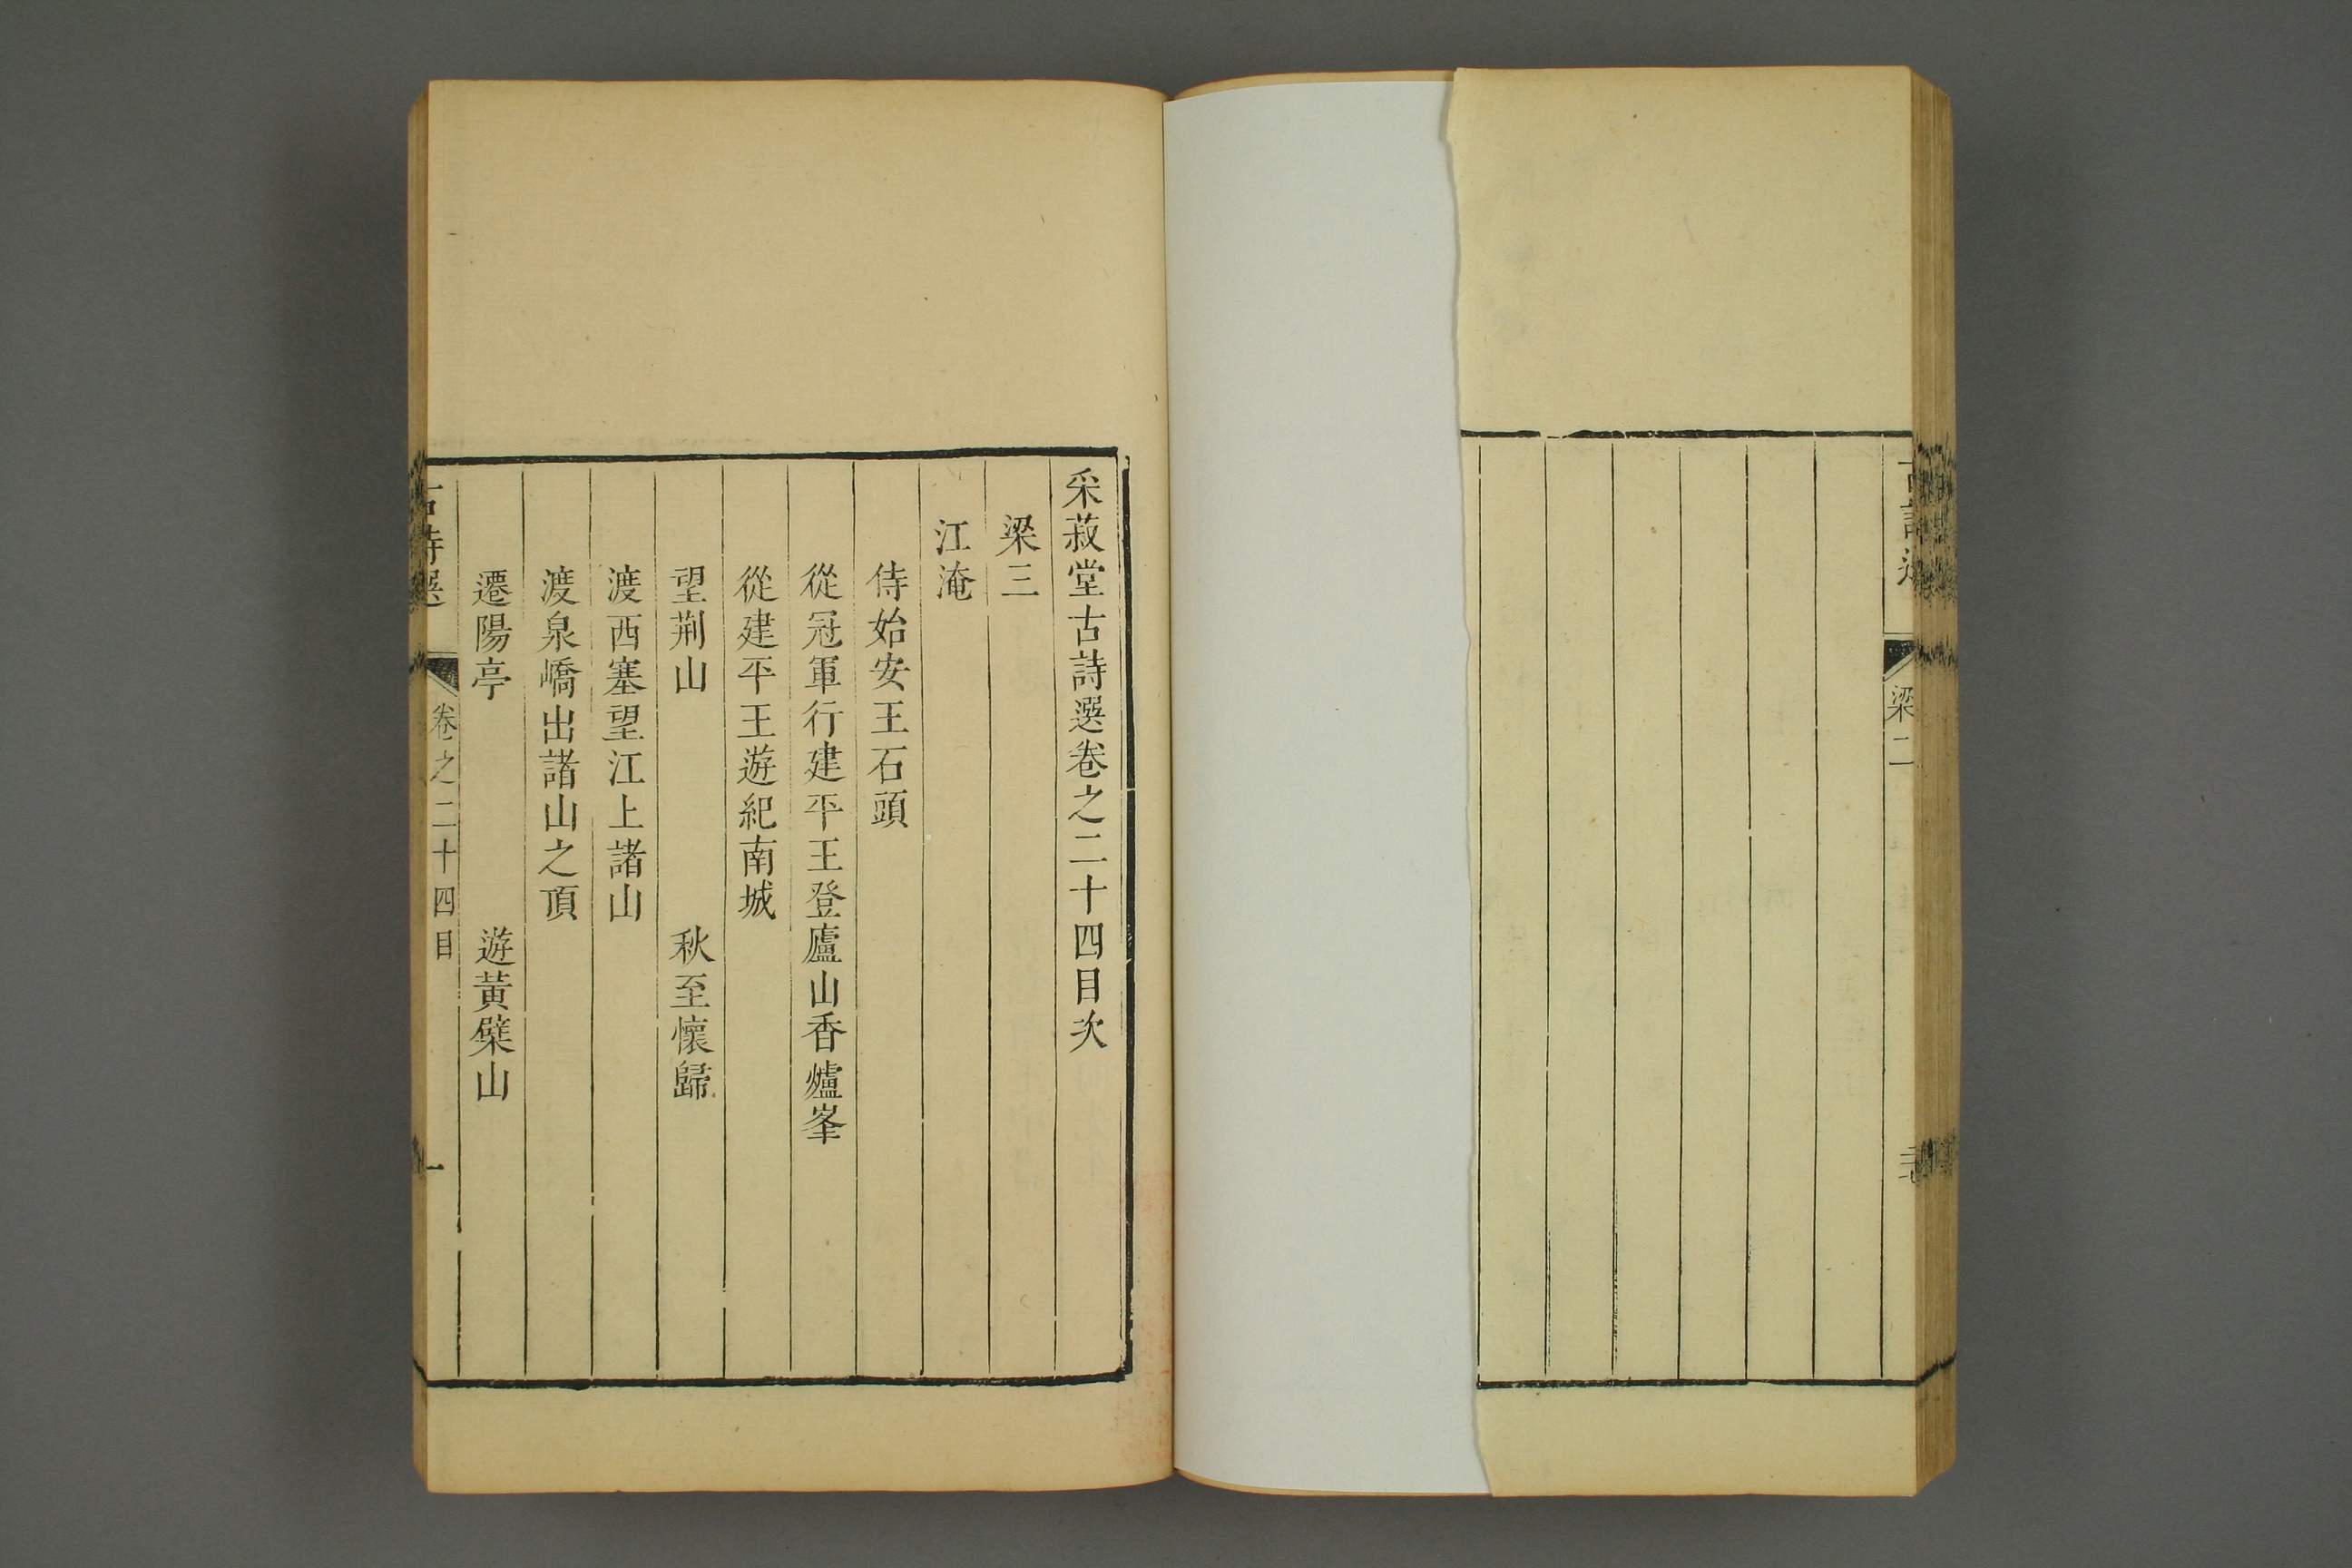 梁二
采菽堂古詩選卷之二十四目次
梁三
江淹
侍始安王石頭
從冠軍行建平王登廬山香爐峯
從建平王遊紀南城
望荆山 秋至懷歸
渡西塞望江上諸山
渡泉嶠出諸山之頂
遷陽亭 遊黃檗山
古詩選 卷之二十四目 一